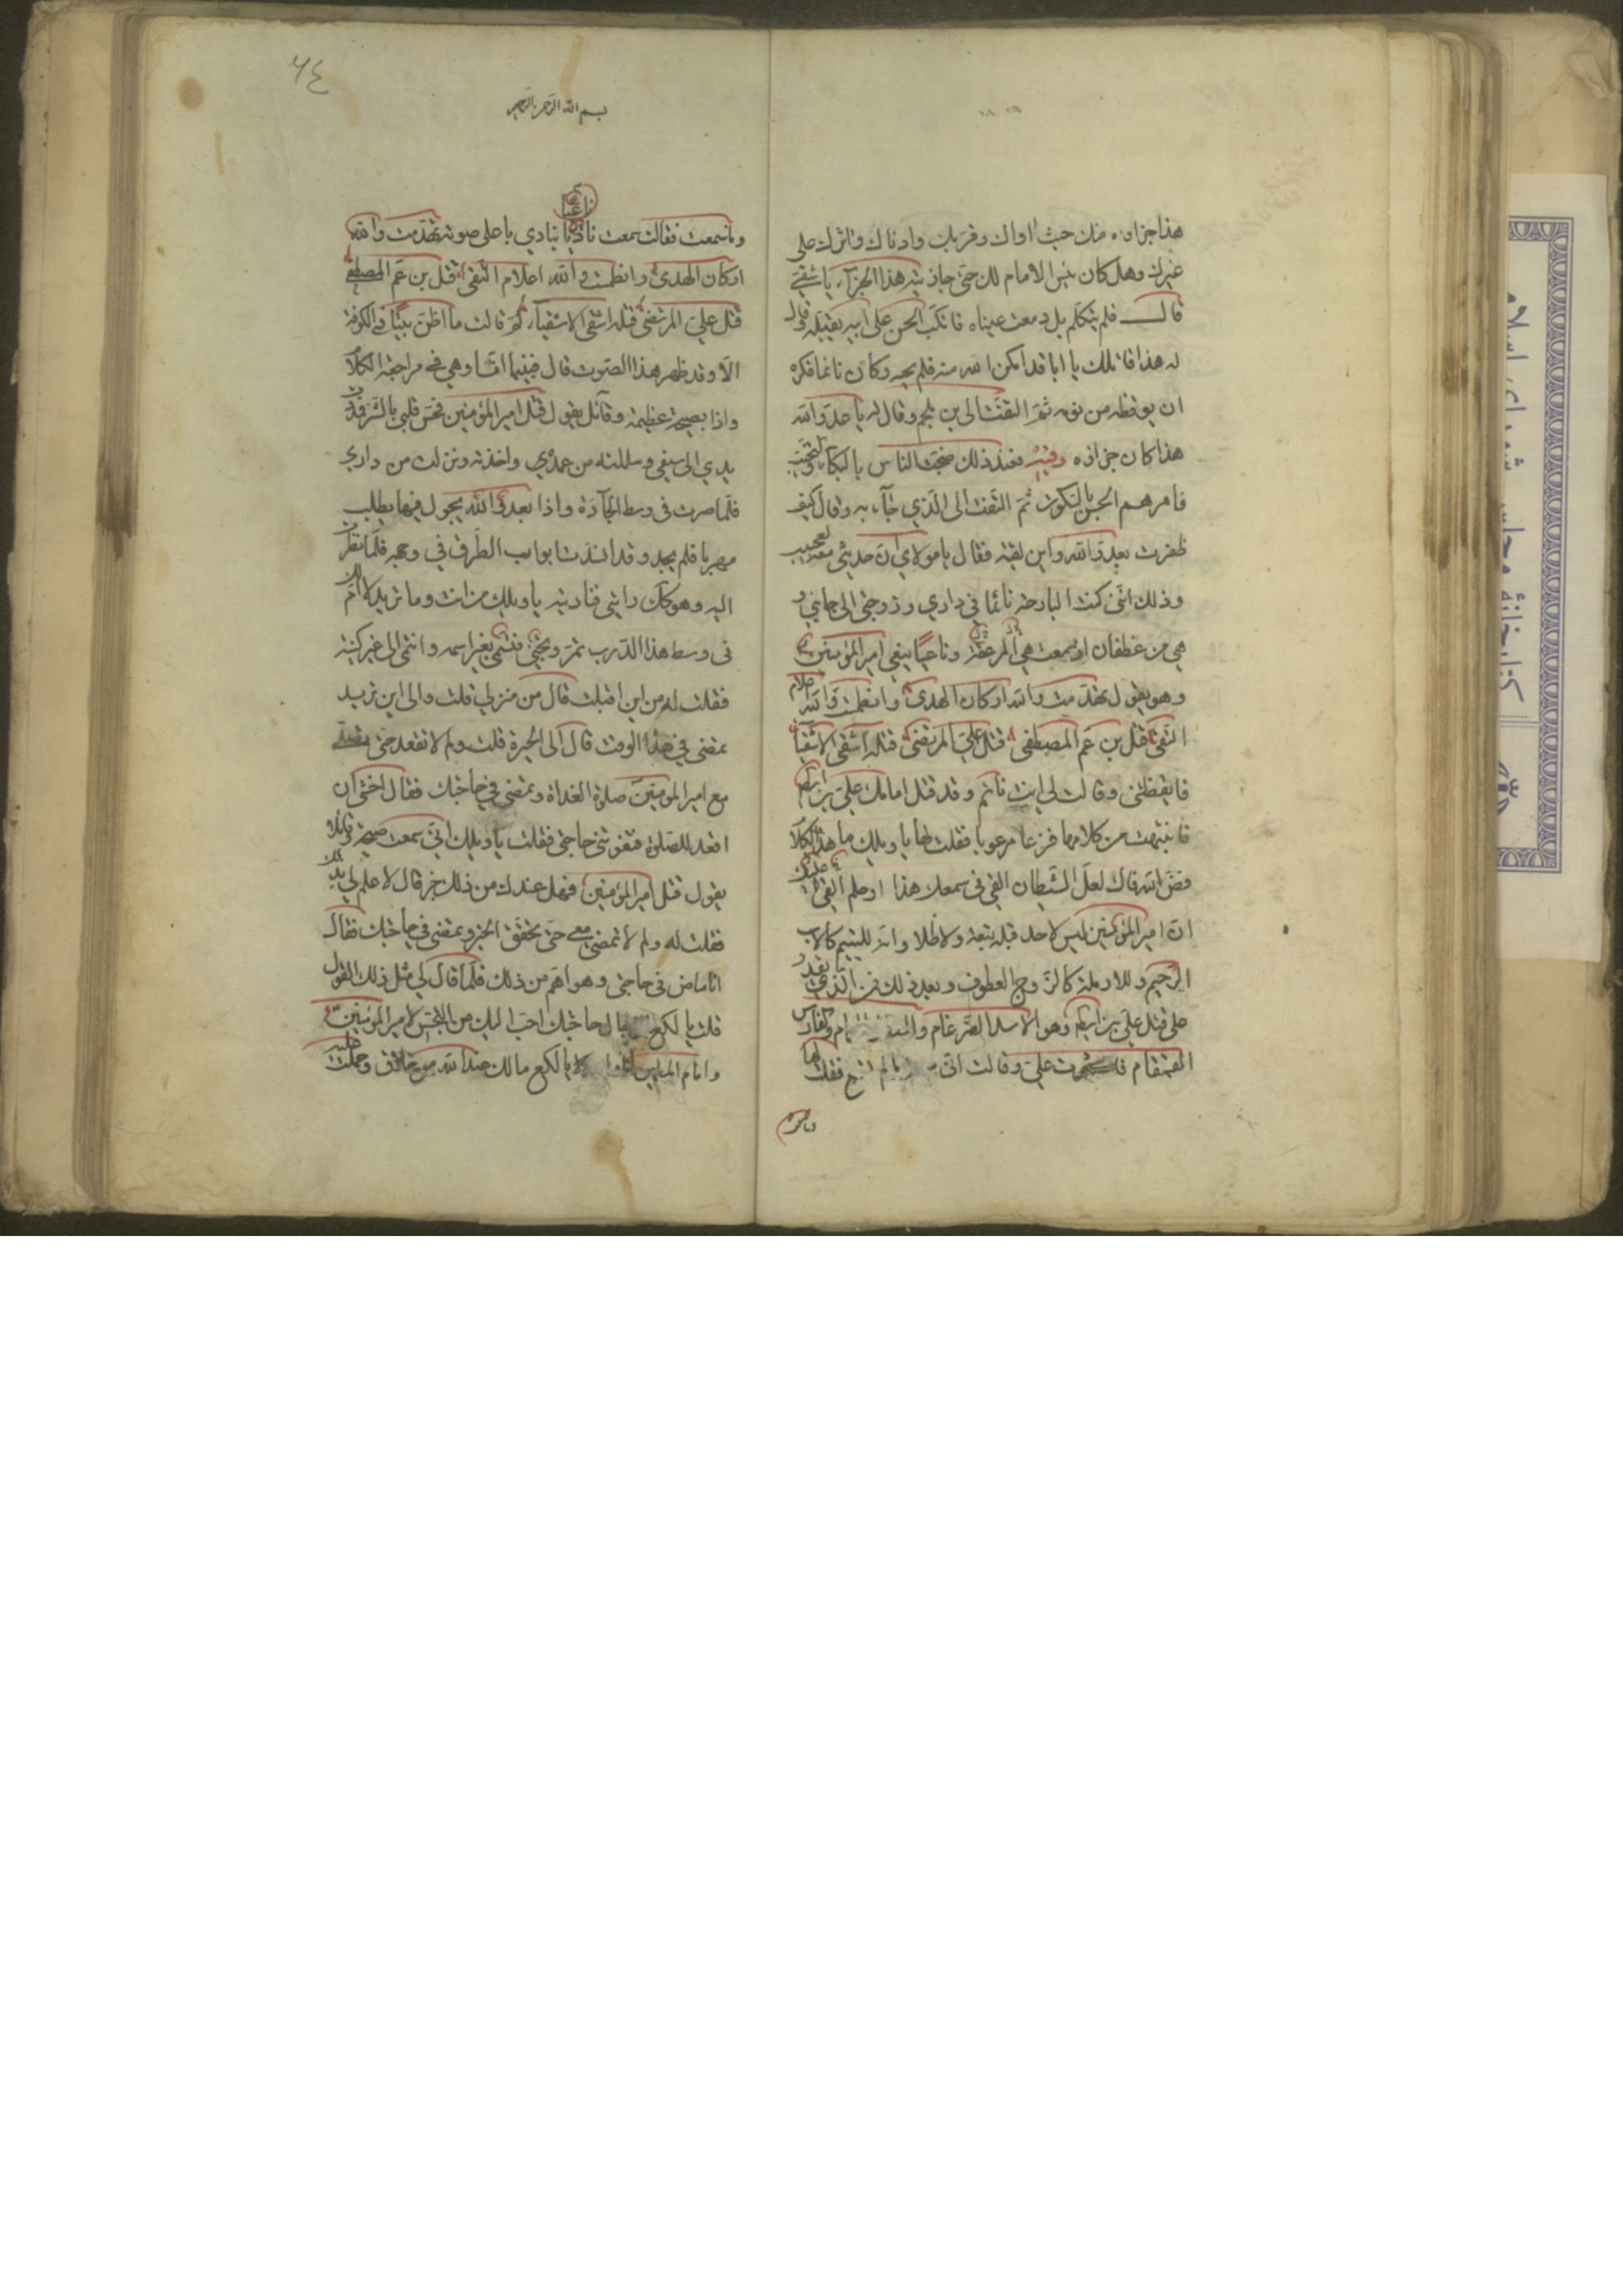 هذا جزاوه منك حيث اواك وقربك وادناك واثرك على
غيرك وهل كان بئس الامام لك حتى جازيته هذا الجزآء يا شقي
قال فلم يتكلم بل دمعت عيناه فانكب الحسن على ابيه يقبله وقال
له هذا قاتلك يا ابا قد امكن الله منه فلم يجبه وكان نائما فكره
ان يوقظه من نومه ثم التفت الى بن ملجم وقال له يا عدو الله
هذا كان جزاؤه فعند ذلك ضجت الناس بالبكآء والنحيب
فامرهم الحسن بالسكوت ثم التفت الى الذي جآء به وقال كيف
ظفرت بعدو الله واين لقيته فقال يا مولاي ان حديثي معه لعجيب
وذلك انني كنت البارحة نائما في داري وزوجتي الى جانبي و
هي من غطفان اذ سمعت هي وناعيا ينعى امير المؤمنين
وهو يقول تهدمت والله اركان الهدى وانطمت والله اعلام
التقى قتل بن عم المصطفى قتل علي المرتضى قتله اشقى الاشقيآ
فايقظتني وقالت لي انت نائم وقد قتل امامك علي بن ابيطالب
فانتبهت من كلامها فزعا مرعوبا فقلت لها يا ويلك ما هذا الكلام
فض الله فاك لعل الشيطان القى في سمعك هذا او حلم القى عليك
ان امير المؤمنين ليس لاحد قبله تبعة ولا ظلامة وانه لليتيم كالاب
الرحيم وللارملة كالزوج العطوف وبعد ذلك فمن الذي يقدر
على قتل علي بن ابيطالب وهو الاسد الضرغام والفارس
القمقام فاكثرت علي وقالت اني فقلت لها
وما سمعت
٦٤
بسم الله الرحمن الرحيم
ناعيا
وما سمعت فقالت سمعت ناديا ينادي باعلى صوته تهدمت والله
اركان الهدى وانطمت والله اعلام التقى قتل بن عم المصطفى
قتل علي المرتضى قتله اشقى الاشقيآء ثم قالت ما اظن بيتا في الكوفة
الا وقد ظهر هذا الصوت قال فبينما انا وهي في مراجعة الكلام
واذا بصيحة عظيمة وقآئل يقول قتل امير المؤمنين فحس قلبي بالشر فمددت
يدي الى سيفي وسللته من غمده واخذته ونزلت من داري
فلما صرت في وسط الجآدة واذا بعدو الله يجول فيها يطلب
مهربا فلم يجد وقد انسدت ابواب الطرق في وجهه فلما نظرت
اليه وهو كذلك رابني فناديته يا ويلك من انت وما تريد لا ام لك
في وسط هذا الدرب تمر وتجئ فتسمى بغير اسمه وانتمى الى غير كنيته
فقلت له من اين اقبلت قال من منزلي قلت والى اين تريد
تمضي في هذا الوقت قال الى الحيرة قلت ولم لا تقعد حتى تصلي
مع امير المومنين صلوة الغداة وتمضي في حاجتك فقال اخشى ان
اقعد للصلوة فتفوتني حاجتي فقلت يا ويلك اني سمعت صيحة وقائلا
يقول قتل امير المؤمنين فهل عندك من ذلك خبر قال لا علم لي بذلك
فقلت له ولم لا تمضي معي حتى تحقق الخبر وتمضي في حاجتك فقال
انا ماض في حاجتي وهو اهم من ذلك فلما قال لي مثل ذلك القول
قلت يا لكع حاجتك احب اليك من التجسس لامير المومنين
وامام المسلمين يا لكع مالك عند الله من خلاق وحملت عليه